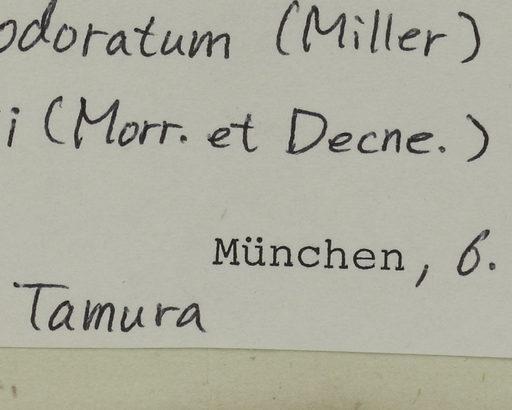 odoratum (Miller)
i (Morr. et Decne.)
München, 6.
Tamura